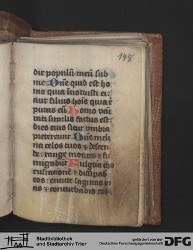 148
die populu[m] meu[m] sub
me. Dne quid est ho
mo quia innotuisti ei:
aut filius hois quia
putas eu[m]. Homo vani
tati similis factus est:
dies eius sicut umbra
pretereunt. Dne incli
na celos tuos et descen
de: tange montes et fu
migabunt. Fulgura cho
ruscatione et dissipa
bis eos: emitte sagittas
tuas et conturbabis eos
Stadtbibliothek
und Stadtarchiv Trier
gefördert von der
DFG
Deutsche Forschungsgemeinschaft